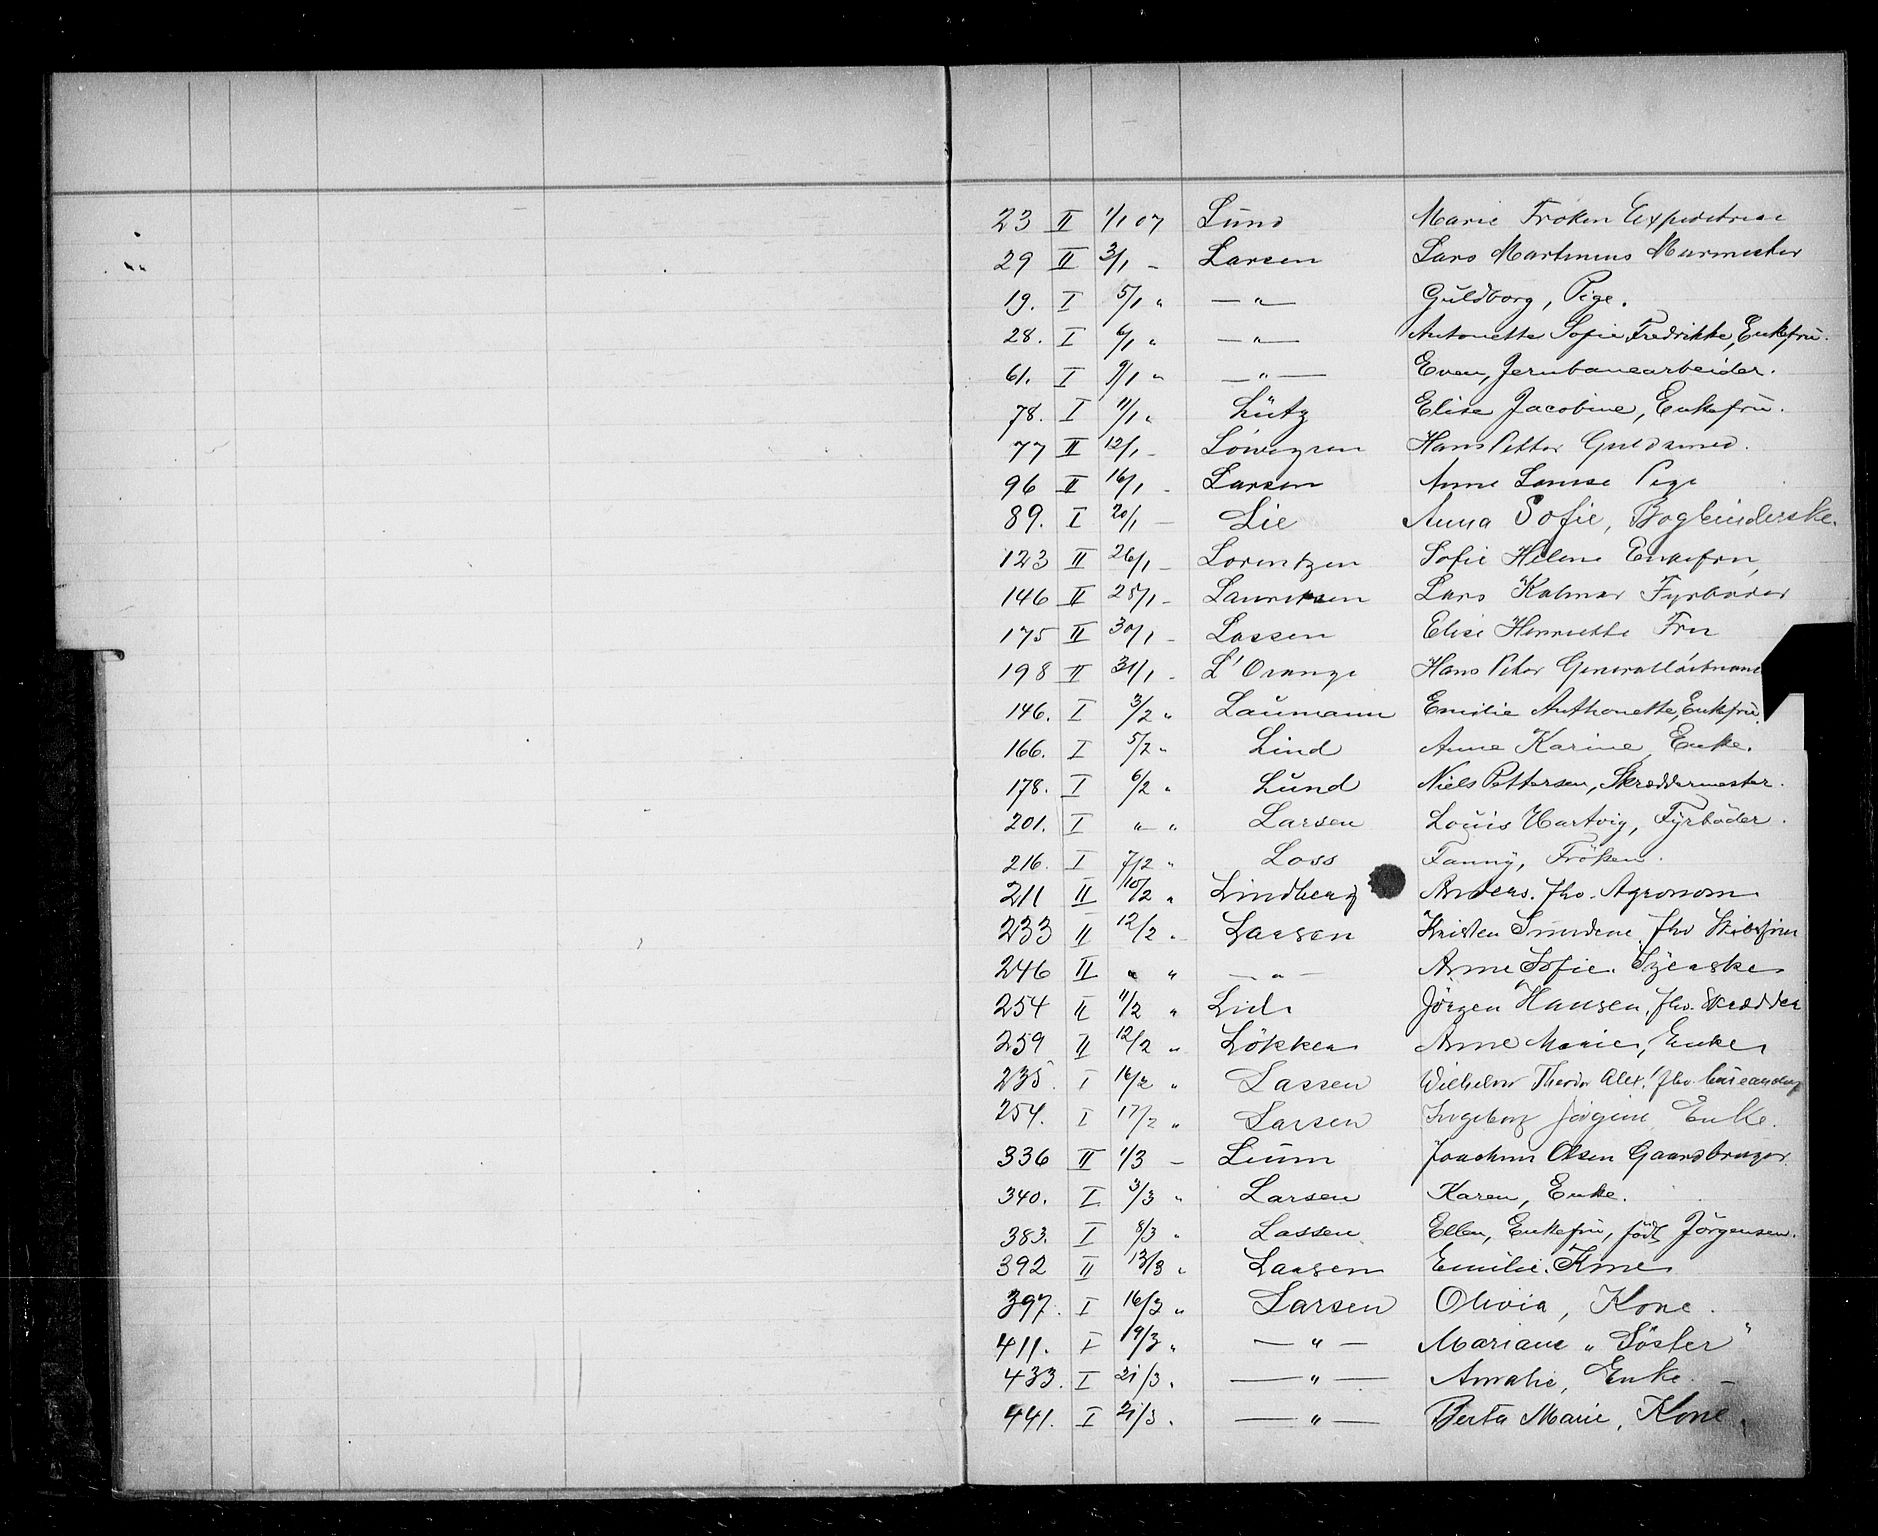 23 II 1/1 07 Lund Marie Frøken Expeditrise
29 II 3/1 – Larsen Lars Martinius Murmester
19. I 5/1 " — " — Guldborg, Pige.
28. I 6/1 " — " — Antonette Sofie Fredrikke, Enkefru.
61. I 9/1 " — " — Even, Jernbanearbeider.
78. I 11/1 " Lütz Elise Jacobine, Enkefru.
77 II 12/1 – Hans Petter Guldsmed.
96 II 16/1 – Larsen Anne Lovise Pige
89. I 20/1 — Lie Anna Sofie, Bogbinderske.
123 II 26/1 – Lorentzen Sofie Helene Enkefru,
146 II 25/1 – Lauritsen Lars Kalmar Fyrbøder
175 II 30/1 – Lassen Elise Henriette Fru
198 II 31/1 – L'Orange Hans Peter Generalløitnant
146. I 3/2 " Laumann Emilie Anthonette, Enkefru.
166. I 5/2 " Lind Anne Karine, Enke.
178. I 6/2 " Lund Niels Pettersen, Skræddermester.
201. I " " Larsen Louis Hartvig, Fyrböder.
216. I 7/2 " Loss Fanny, Fröken.
211 II 10/2 " Lindberg Anders. fhv. Agronom
233 II 12/2 " Larsen Kristen fhv
246 II " " — " — Anne Sofie. Syerske
254 II 11/2 " Jörgen Hansen. fhv. Skrædder
259 II 12/2 " Lökken Anne Marie, Enke
235. I 16/2 " Lassen Wilhelm Theodor Alex. fhv.
254. I 17/2 " Larsen Ingeborg Jörgine Enke.
336 II 1/3 – Lium Joachim Olsen Gaardbruger.
340. I 3/3 " Larsen Karen, Enke.
383. I 8/3 " Lassen Ellen, Enkefru, födt Jörgensen.
392 II 13/3 " Larsen Emilie. Kone
397. I 16/3 " Larsen Olivia, Kone.
411. I 19/3 " — " — Mariane "Söster"
433. I 21/3 " — " — Amalie, Enke. –
441. I 21/3 " — " — Berta Marie, Kone.